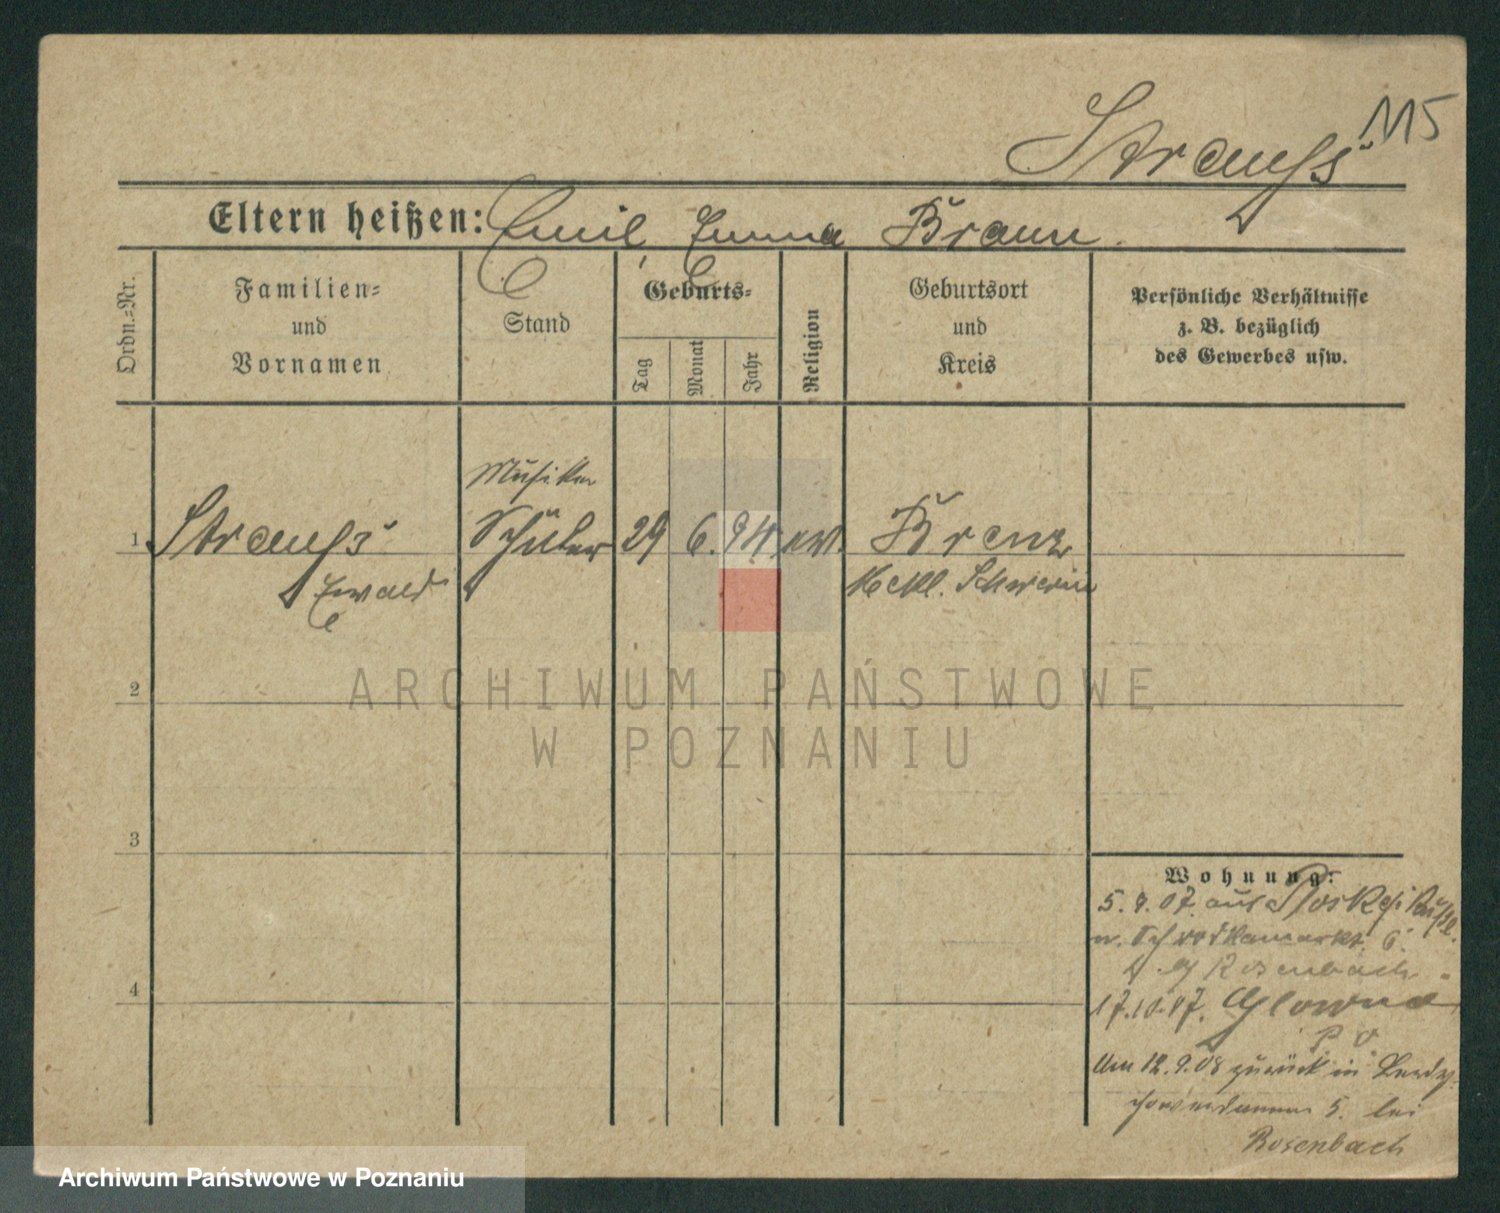 115
Strauss
Eltern heißen: Emil, Emma Braun.
Ordn.-Nr.
Familien-
und
Vornamen
Stand
Geburts-
Tag
Monat
Jahr
Religion
Geburtsort
und
Kreis
Persönliche Verhältnisse
z. B. bezüglich
des Gewerbes usw.
Musiker
1 Strauss Schüler 29 6. 94 ev. Brenz
Ewald Meckl. Schwerin
2
3
4
Wohnung:
5. 9. 07. aus
n. Schrodkamarkt. 6.
Rosenbach
17.10.07. Glowno
Am 12.9.08 zurück in
5. bei
Rosenbach
ARCHIWUM PAŃSTWOWE
W POZNANIU
Archiwum Państwowe w Poznaniu